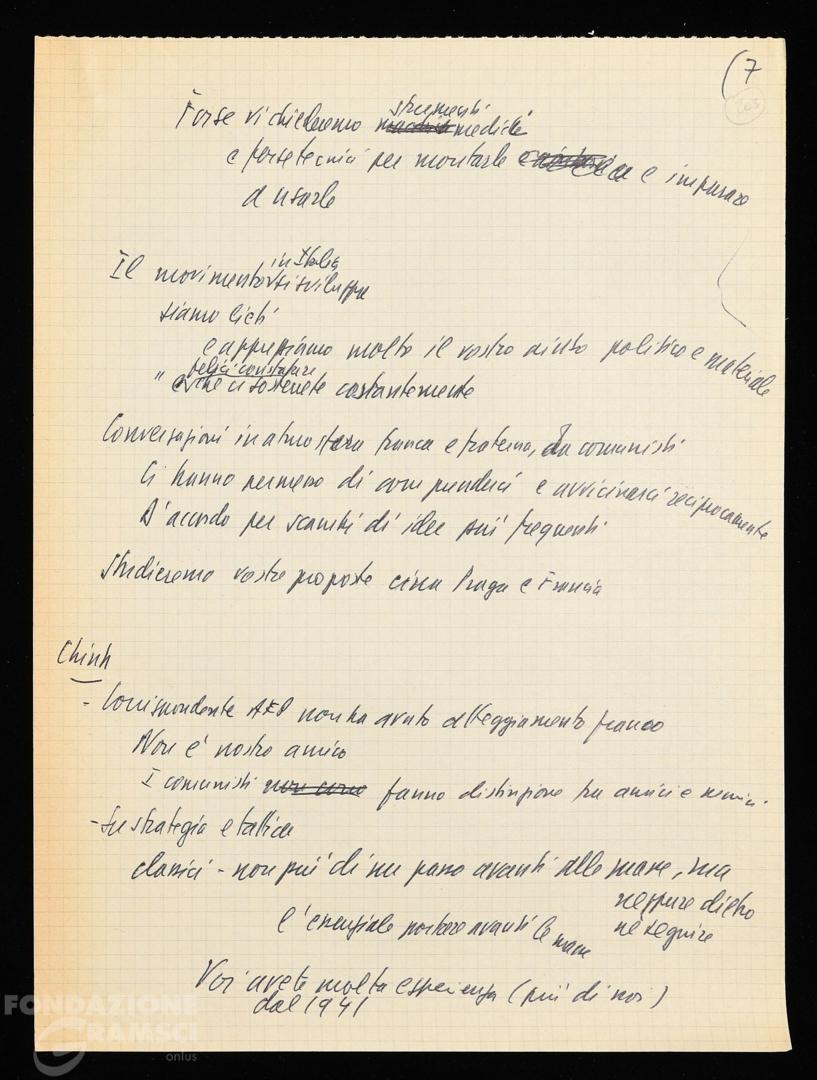 (7
203
Forse vi chiederemo strumenti medici
e forse tecnici per montarle e imparare
a usarle
Il movimento in Italia si sviluppa
siamo lieti
e apprezziamo molto il vostro aiuto politico e materiale
" e felici constatare che ci sostenete costantemente
Conversazioni in atmosfera franca e fraterna, da comunisti
Ci hanno permesso di comprenderci e avvicinarci reciprocamente
D'accordo per scambi di idee più frequenti
Studieremo vostre proposte circa Praga e Francia
Chinh
- Corrispondente AFP non ha avuto atteggiamento franco
Non è nostro amico
I comunisti non come fanno distinzione tra amici e nemici.
- Su strategia e tattica
classici - non più di un passo avanti alle masse, ma
neppure dietro
né seguire
È essenziale portare avanti le masse
Voi avete molta esperienza (più di noi)
dal 1941
FONDAZIONE
GRAMSCI
onlus